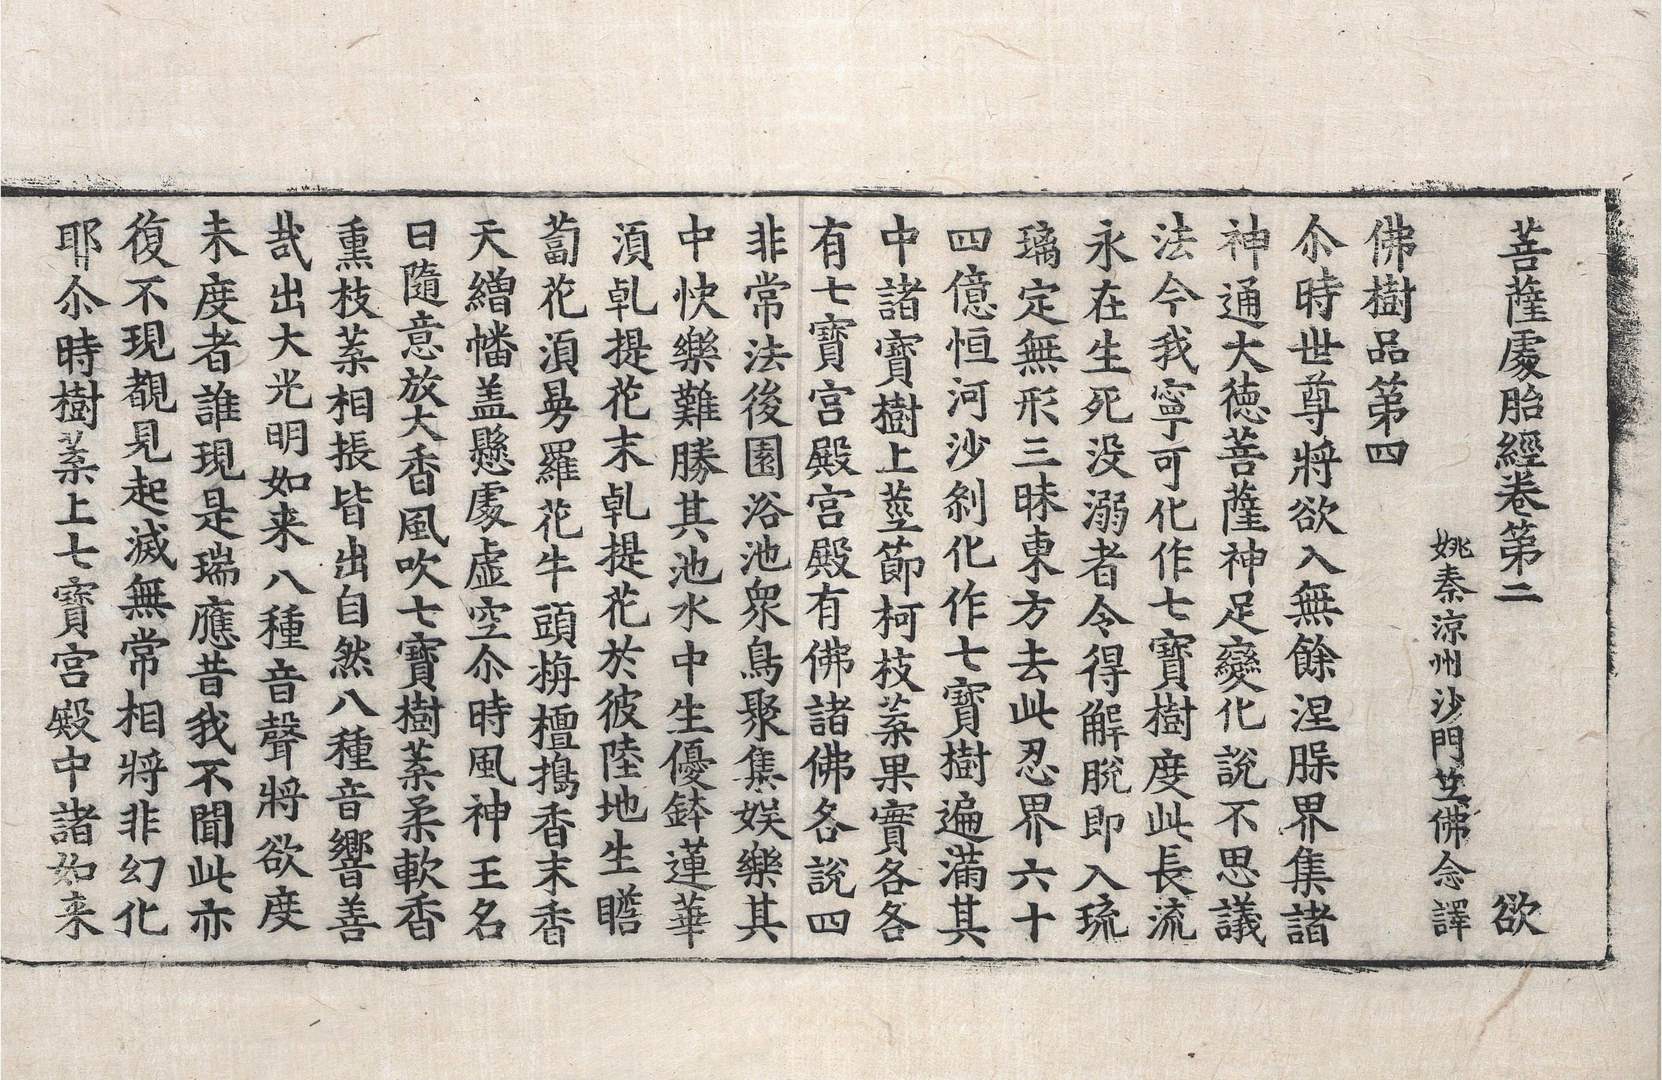 菩薩處胎經卷第二　欲
姚秦涼州沙門竺佛念譯
佛樹品第四
尒時世尊將欲入無餘涅槃界集諸
神通大德菩薩神足變化說不思議
法今我寧可化作七寶樹度此長流
永在生死没溺者令得解脫即入琉
璃定無形三昧東方去此忍界六十
四億恒河沙刹化作七寶樹遍滿其
中諸寶樹上莖節柯枝葉果實各各
有七寶宮殿宮殿有佛諸佛各各說四
非常法後園浴池衆鳥聚集娛樂其
中快樂難勝其池水中生優鉢蓮華
須乹提花末乹提花於彼陸地生瞻
蔔花須曼羅花牛頭栴檀擣香末香
天繒幡盖懸處虛空尒時風神王名
曰隨意放大香風吹七寶樹葉柔軟香
熏枝葉相振皆出自然八種音響善
哉出大光明如来八種音聲將欲度
未度者誰現是瑞應昔我不聞此亦
復不現覩見起滅無常相將非幻化
耶尒時樹葉上七寶宮殿中諸如来